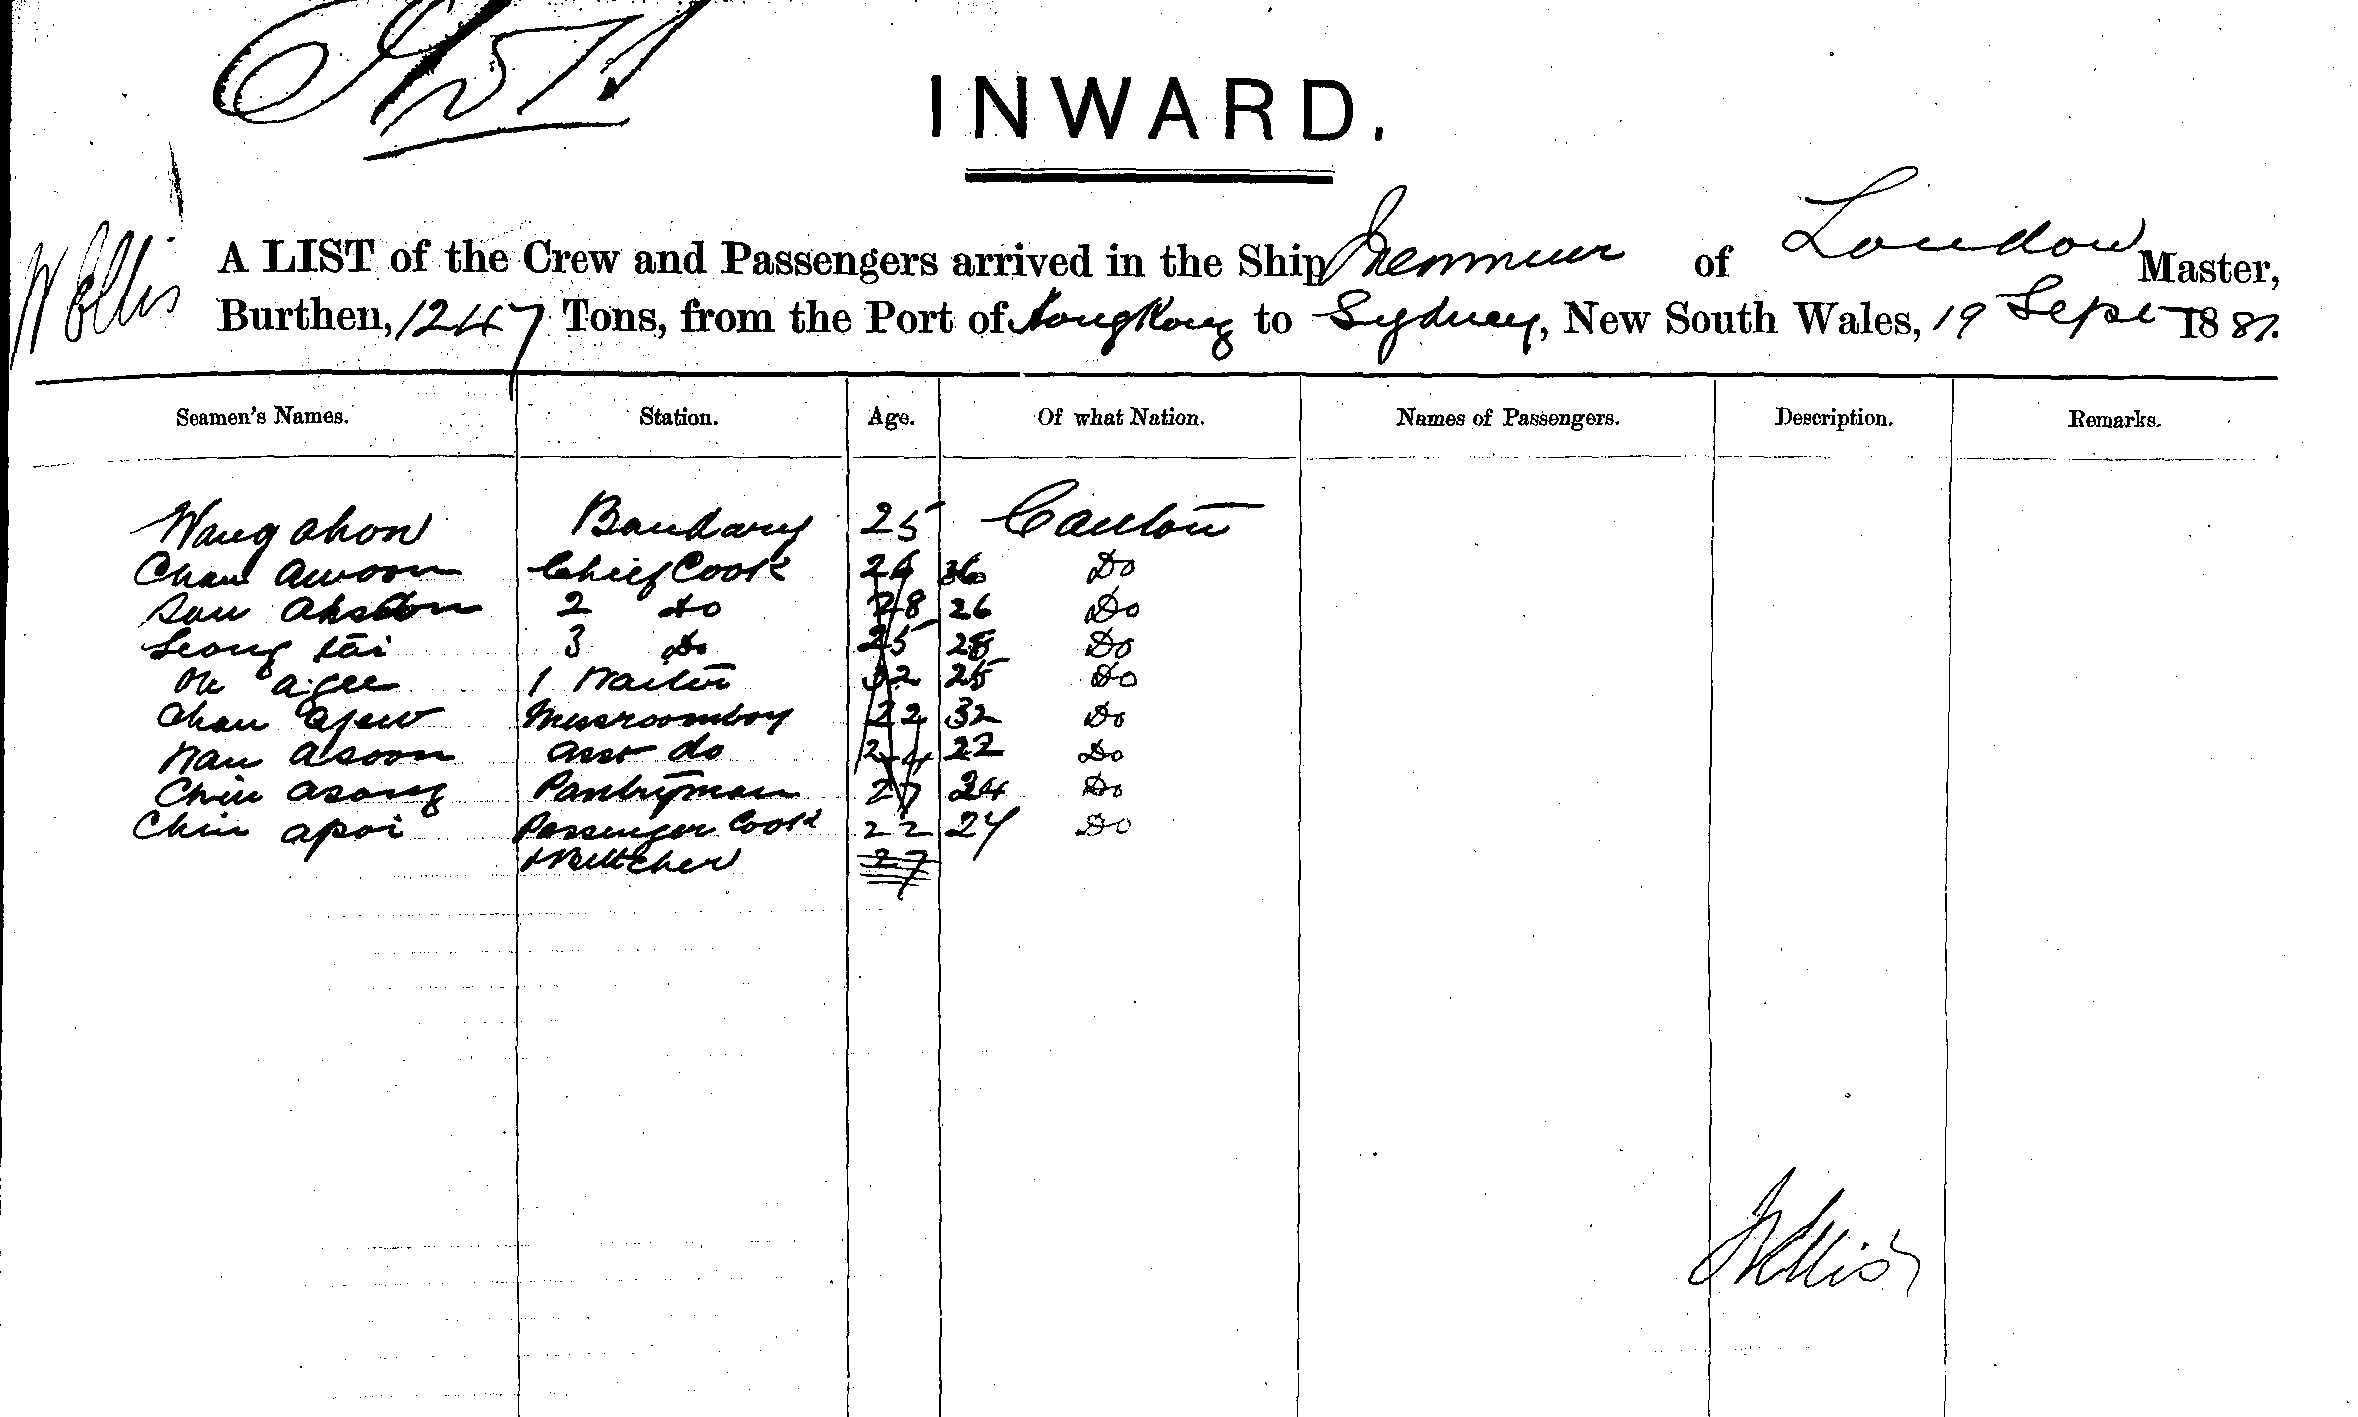 INWARD.
W Ellis A LIST of the Crew and Passengers arrived in the Ship Menmuir of London Master,
Burthen, 1247 Tons, from the Port of Hongkong to Sydney, New South Wales, 19 Sept 1887.
Seamen's Names. Station. Age. Of what Nation. Names of Passengers. Description. Remarks.
Wang ahon Bandary 25 Canton
Chan Awoon Chief Cook 26 36 Do
Sau 2 do 28 26 Do
Leong tai 3 Do 25 28 Do
agee 1 Waiter 32 25 Do
Chan Ajew Messroomboy 22 32 Do
asoon asst do 24 22 Do
Chin asong Pantryman 27 24 Do
Chin apoi Passenger Cook 22 27 Do
& Buttcher 27
W Ellis